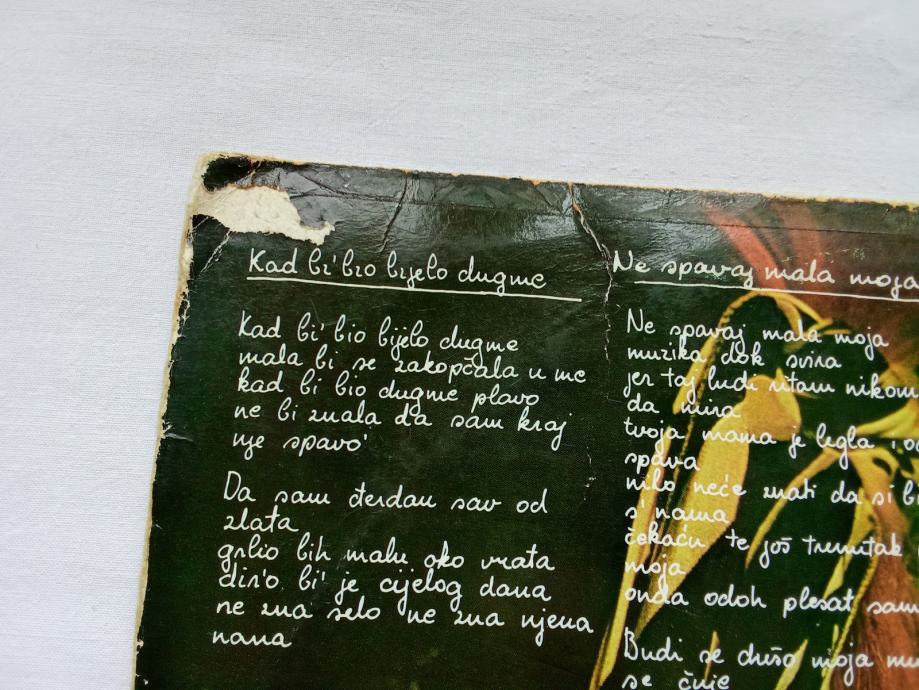 Kad bi' bio bijelo dugme
Kad bi' bio bijelo dugme
mala bi se zakopčala u me
kad bi bio dugme plavo
ne bi znala da sam kraj
nje spavo'
Da sam đerdan sav od
zlata
grlio bih malu oko vrata
dir'o bi' je cijelog dana
ne zna selo ne zna njena
nana
Ne spavaj mala moja
Ne spavaj mala moja
muzika dok svira
jer taj ludi ritam nikom
da mira
tvoja mama je legla
spava
nitko neće znati da si bi
s' nama
čekaću te još trenutak
moja
onda odoh plesat sam
Budi se dušo moja mu
se čuje